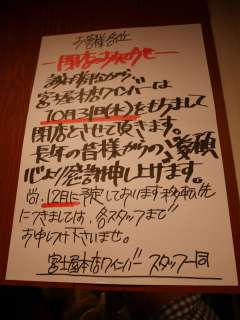 お客様各位
閉店のお知らせ
誠に勝手ながら
富士屋本店ワインバーは
10月31日(木)をもちまして
閉店とさせて頂きます。
長年の皆様からのご愛顧
心より感謝申し上げます。
尚、12月に予定しております移転先
につきましては、各スタッフまで
お申しつけ下さいませ。
富士屋本店ワインバー スタッフ一同